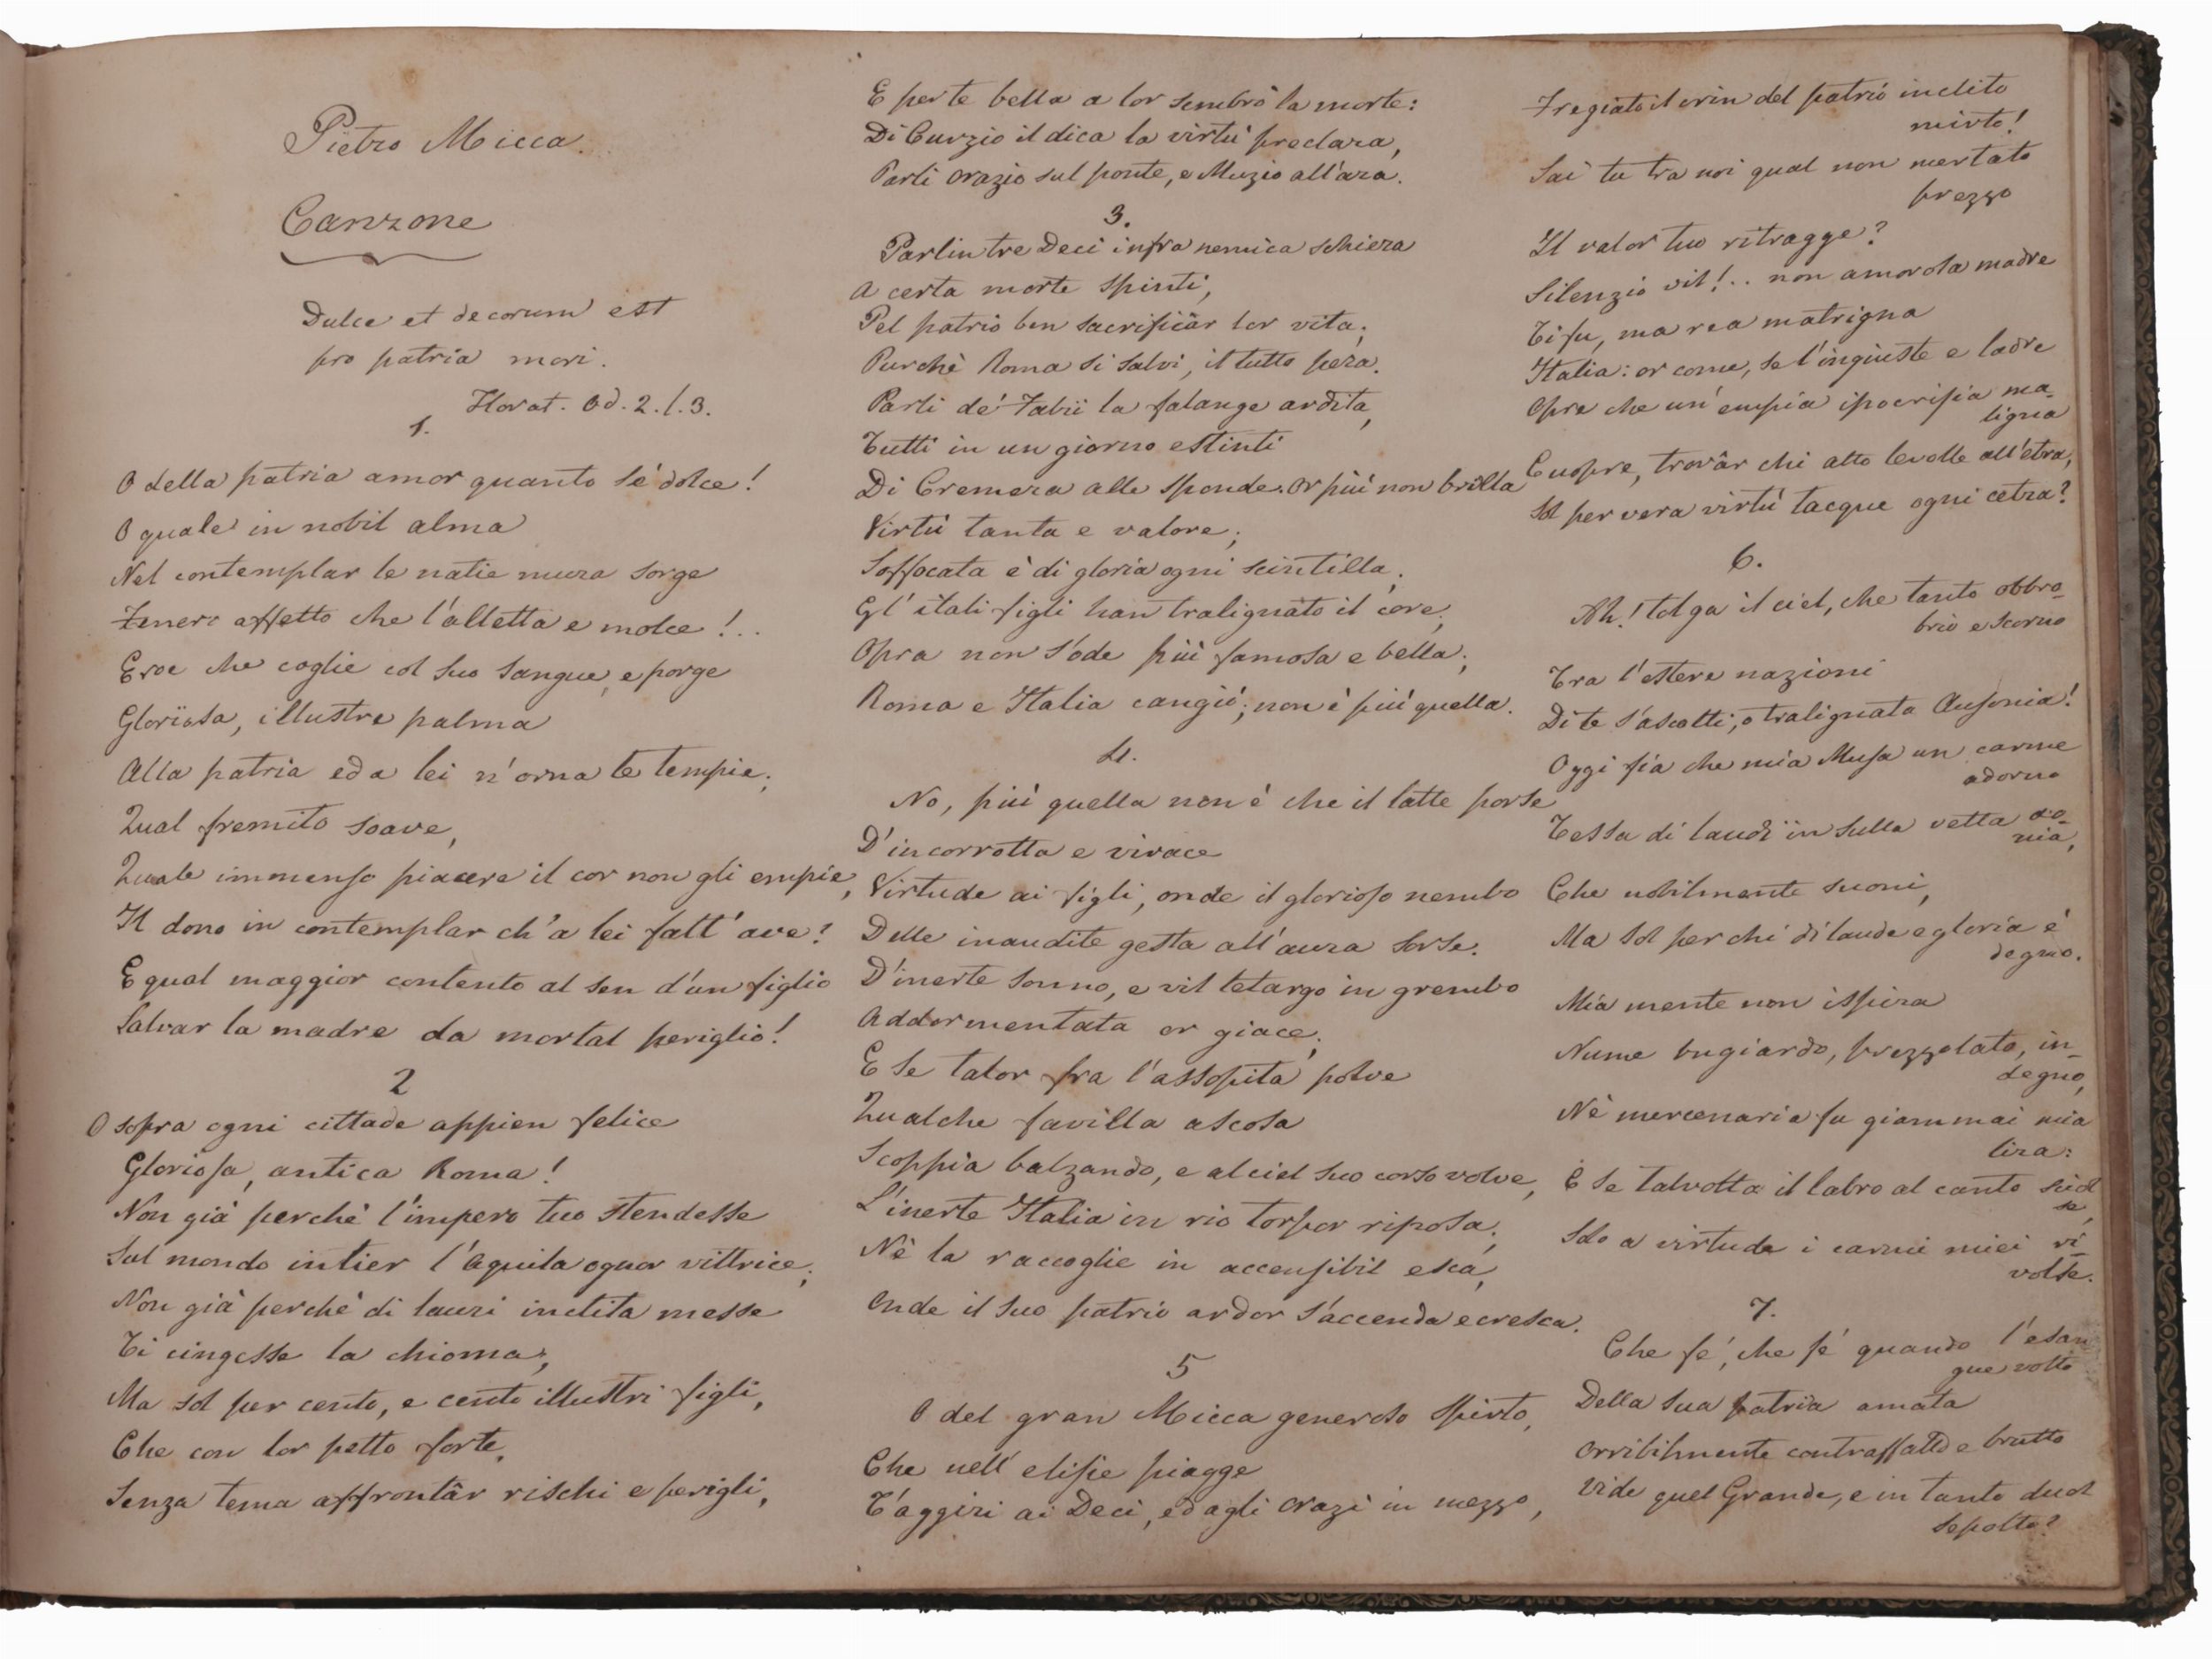 Pietro Micca.
Canzone
Dulce et decorum est
pro patria mori.
Horat. Od. 2. l. 3.
1.
O della patria amor quanto sé dolce!
O quale in nobil alma
Nel contemplar le natie mura sorge
Tenero affetto che l'alletta e molce!..
Eroe che coglie col suo sangue, e porge
Glorïosa, illustre palma
Alla patria ed a lei n'orna le tempie;
Qual fremito soave,
Quale immenso piacere il cor non gli empie,
Il dono in contemplar ch'a lei fatt'ave?
E qual maggior contento al sen d'un figlio
Salvar la madre da mortal periglio!
2
O sopra ogni cittade appien felice
Gloriosa, antica Roma!
Non già perchè l'impero tuo stendesse
Sul mondo intier l'Aquila ognor vittrice;
Non già perchè di lauri inclita messe
Ti cingesse la chioma;
Ma sol per cento, e cento illustri figli,
Che con lor petto forte,
Senza tema affrontâr rischi e perigli,
E per te bella a lor sembrò la morte:
Di Curzio il dica la virtù preclara,
Parli Orazio sul ponte, e Muzio all'ara.
3.
Parlin tre Deci infra nemica schiera
A certa morte spinti,
Pel patrio ben sacrificâr lor vita;
Purchè Roma si salvi, il tutto pera.
Parli de' Fabii la falange ardita,
Tutti in un giorno estinti
Di Cremera alle sponde. Or più non brilla
Virtù tanta e valore;
Soffocata è di gloria ogni scintilla;
Gl'itali figli han tralignato il core;
Opra non s'ode più famosa e bella;
Roma e Italia cangiò; non è più quella.
4.
No, più quella non è che il latte porse
D'incorrotta e vivace
Virtude ai figli, onde il glorioso nembo
Delle inaudite gesta all'aura sorse.
D'inerte sonno, e vil letargo in grembo
Addormentata or giace;
E se talor fra l'assopita polve
Qualche favilla ascosa
Scoppia balzando, e al ciel suo corso volve,
L'inerte Italia in rio torpor riposa;
Nè la raccoglie in accensibil esca,
Onde il suo patrio ardor s'accenda e cresca.
5
O del gran Micca generoso spirto,
Che nell'elisie piagge
T'aggiri ai Deci, ed agli Orazi in mezzo,
Fregiato il crin del patrio inclito
mirto!
Sai tu tra noi qual non mertato
prezzo
Il valor tuo ritragge?
Silenzio vil!.. non amorosa madre
Ti fu, ma rea matrigna
Italia: or come, se l'ingiuste e ladre
Opre che un'empia ipocrisia ma-
ligna
Cuopre, trovâr chi alto levolle all'etra,
Sol per vera virtù tacque ogni cetra?
6.
Ah! tolga il ciel, che tanto obbro-
brio e scorno
Tra l'estere nazioni
Di te s'ascolti, o tralignata Ausonia!
Oggi fia che mia Musa un carme
adorno
Tessa di laudi in sulla vetta ao-
nia,
Che nobilmente suoni,
Ma sol per chi di laude e gloria è
degno.
Mia mente non ispira
Nume bugiardo, prezzolato, in-
degno,
Nè mercenaria fu giammai mia
lira:
E se talvolta il labro al canto sciol
se,
Solo a virtude i carmi miei ri-
volse.
7.
Che fe', che fe' quando l'esan
gue volto
Della sua patria amata
Orribilmente contraffatto e brutto
Vide quel Grande, e in tanto duol
sepolto?